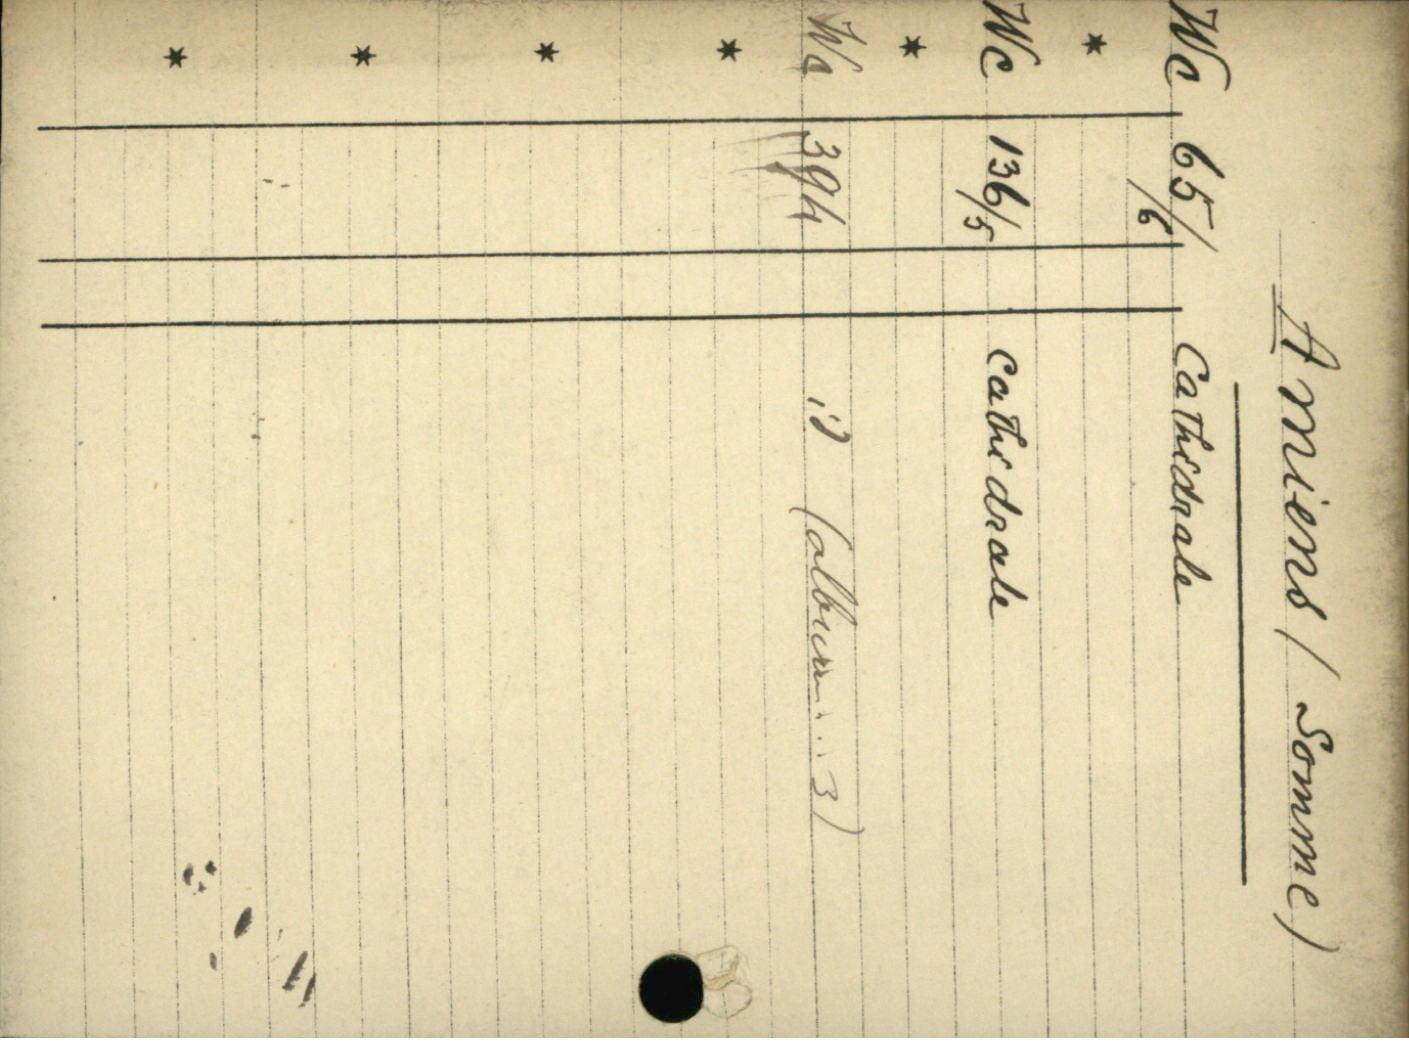 Amiens (Somme)
Wc 65/6 Cathédrale
*
Wc 136/5 cathédrale
*
Wc 394 id (album....3)
*
*
*
*